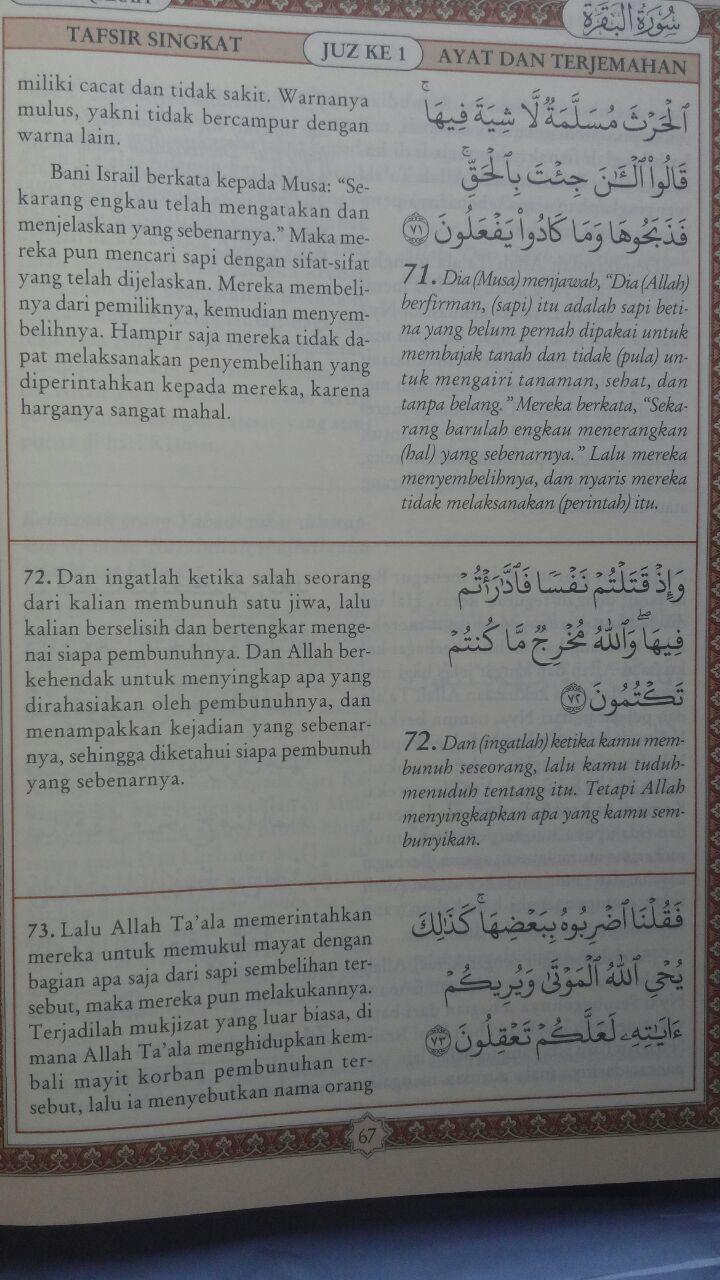 سُورَةُ الْبَقَرَةِ
TAFSIR SINGKAT
JUZ KE 1
AYAT DAN TERJEMAHAN
miliki cacat dan tidak sakit. Warnanya
mulus, yakni tidak bercampur dengan
warna lain.
Bani Israil berkata kepada Musa: “Se-
karang engkau telah mengatakan dan
menjelaskan yang sebenarnya.” Maka me-
reka pun mencari sapi dengan sifat-sifat
yang telah dijelaskan. Mereka membeli-
nya dari pemiliknya, kemudian menyem-
belihnya. Hampir saja mereka tidak da-
pat melaksanakan penyembelihan yang
diperintahkan kepada mereka, karena
harganya sangat mahal.
ٱلْحَرْثَ مُسَلَّمَةٌ لَّا شِيَةَ فِيهَا ۚ
قَالُوا۟ ٱلْـَٰٔنَ جِئْتَ بِٱلْحَقِّ ۚ
فَذَبَحُوهَا وَمَا كَادُوا۟ يَفْعَلُونَ ٧١
71. Dia (Musa) menjawab, “Dia (Allah)
berfirman, (sapi) itu adalah sapi beti-
na yang belum pernah dipakai untuk
membajak tanah dan tidak (pula) un-
tuk mengairi tanaman, sehat, dan
tanpa belang.” Mereka berkata, “Seka-
rang barulah engkau menerangkan
(hal) yang sebenarnya.” Lalu mereka
menyembelihnya, dan nyaris mereka
tidak melaksanakan (perintah) itu.
72. Dan ingatlah ketika salah seorang
dari kalian membunuh satu jiwa, lalu
kalian berselisih dan bertengkar menge-
nai siapa pembunuhnya. Dan Allah ber-
kehendak untuk menyingkap apa yang
dirahasiakan oleh pembunuhnya, dan
menampakkan kejadian yang sebenar-
nya, sehingga diketahui siapa pembunuh
yang sebenarnya.
وَإِذْ قَتَلْتُمْ نَفْسًا فَٱدَّٰرَْٰٔتُمْ
فِيهَا ۖ وَٱللَّهُ مُخْرِجٌ مَّا كُنتُمْ
تَكْتُمُونَ ٧٢
72. Dan (ingatlah) ketika kamu mem-
bunuh seseorang, lalu kamu tuduh-
menuduh tentang itu. Tetapi Allah
menyingkapkan apa yang kamu sem-
bunyikan.
73. Lalu Allah Ta’ala memerintahkan
mereka untuk memukul mayat dengan
bagian apa saja dari sapi sembelihan ter-
sebut, maka mereka pun melakukannya.
Terjadilah mukjizat yang luar biasa, di
mana Allah Ta’ala menghidupkan kem-
bali mayit korban pembunuhan ter-
sebut, lalu ia menyebutkan nama orang
فَقُلْنَا ٱضْرِبُوهُ بِبَعْضِهَا ۚ كَذَٰلِكَ
يُحْىِ ٱللَّهُ ٱلْمَوْتَىٰ وَيُرِيكُمْ
ءَايَٰتِهِۦ لَعَلَّكُمْ تَعْقِلُونَ ٧٣
67